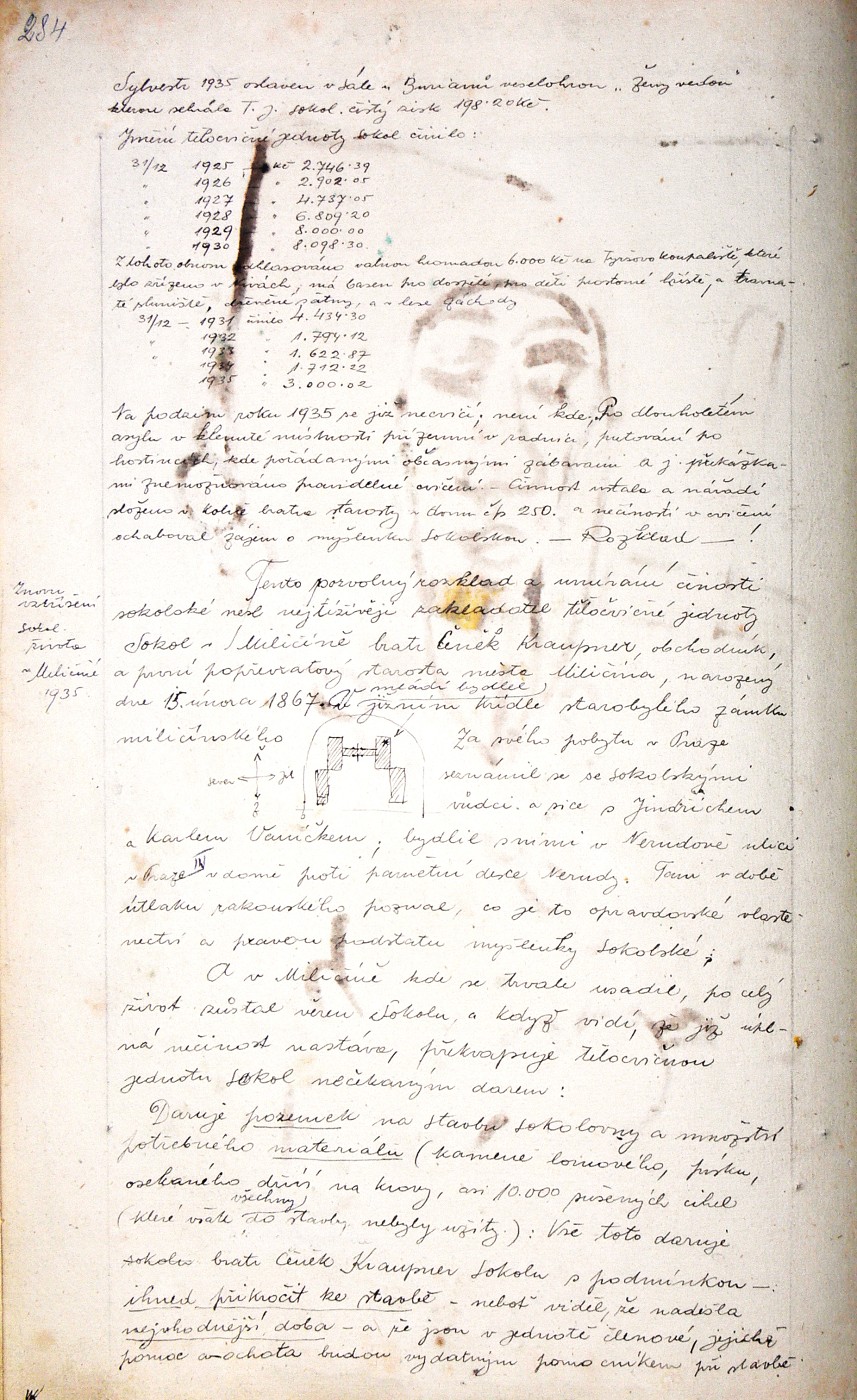 284
Sylvestr 1935 oslaven v sále u Burianů veselohrou „Ženy vedou"
kterou sehrála T. j. Sokol. čistý zisk 198·20 Kč.
Jmění tělocvičné jednoty Sokol činilo:
31/12 1925 Kč 2.746·39
„ 1926 „ 2.902·05
„ 1927 „ 4.737·05
„ 1928 „ 6.809·20
„ 1929 „ 8.000·00
„ 1930 „ 8.098·30
Z tohoto obnosu odhlasováno valnou hromadou 6.000 Kč na Tyršovo koupaliště, které
bylo zřízeno v; má basen pro dospělé, pro děti prostorné hřiště, a travna-
té sluniště, dřevěné šatny, a v lese záchody
31/12 – 1931 činilo 4.434·30
„ 1932 „ 1.794·12
„ 1933 „ 1.622·87
1934 „ 1.712·22
1935 „ 3.000·02
Na podzim roku 1935 se již necvičí; není kde. Po dlouholetém
asylu v klenuté místnosti přízemní v radnici, putování po
hostincích, kde pořádanými občasnými zábavami a j. překážka-
mi znemožňováno pravidelné cvičení. – Činnost ustala a nářadí
složeno v kolně bratra starosty v domě čp 250. a nečinností v cvičení
ochaboval zájem o myšlenku Sokolskou. — Rozklad — !
Znovu
vzkříšení
sokol.
života
v Miličíně
1935.
Tento pozvolný rozklad a umírání činnosti
sokolské nesl nejtíživěji zakladatel tělocvičné jednoty
Sokol v Miličíně bratr Čeněk Kraupner, obchodník,
a první popřevratový starosta města Miličína, narozený
dne 15. února 1867. V mládí bydlel v jižním křídle starobylého zámku
miličínského
sever jih
Za svého pobytu v Praze
seznámil se se sokolskými
vůdci. a sice s Jindřichem
a Karlem Vaníčkem; bydlil s nimi v Nerudově ulici
v Praze IV v domě proti pamětní desce Nerudy. Tam v době
útlaku rakouského poznal, co je to opravdovské vlaste-
nectví a pravou podstatu myšlenky Sokolské;
A v Miličíně kde se trvale usadil, po celý
život zůstal věren Sokolu, a když vidí, že již úpl-
ná nečinnost nastává, překvapuje tělocvičnou
jednotu Sokol nečekaným darem:
Daruje pozemek na stavbu sokolovny a množství
potřebného materiálu (kamene lomového, písku,
osekaného dříví na krovy, asi 10.000 sušených cihel
(které však do stavby všechny nebyly užity.): Vše toto daruje
sokolu bratr Čeněk Kraupner Sokolu s podmínkou —
ihned přikročit ke stavbě – neboť viděl, že nadešla
nejvhodnější doba – a že jsou v jednotě členové, jejichž
pomoc a ochota budou vydatným pomocníkem při stavbě